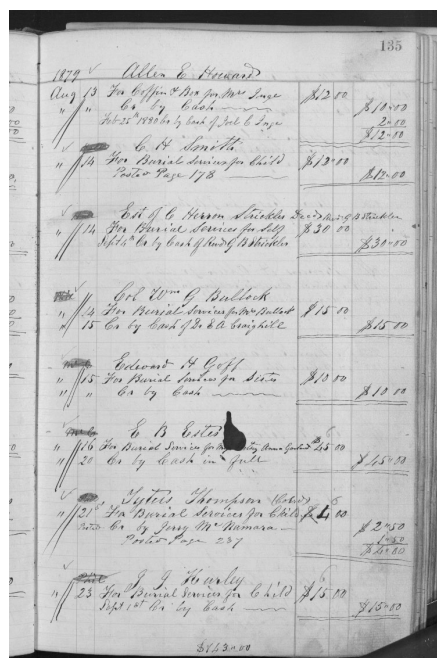 135
1879 Allen E. Howard
Aug 13 For Coffin & Box for Mrs Inge $12 00
" " Cr by Cash $10"00
Feb 25th 1880 Cr by Cash of Joel C Inge 2"00
$12"00
C H Smith
" 14 For Burial Services for Child $12"00
Posted Page 178 $12"00
Est of C Herron Strickler Decd
" 14 For Burial Services for Self $30 00
Sept 4th Cr by Cash of G B Strickler $30"00
Col Wm G Bullock
" 14 For Burial Services for Mrs Bullock $15 00
" 15 Cr by Cash of Dr E A Craighill $15 00
Edward H Goff
" 15 For Burial Services for Sister $10 00
" " Cr by Cash $10 00
E B Estes
" 16 For Burial Service for Anna $45 00
" 20 Cr by Cash in full $45"00
Thompson (Cold)
" 21 For Burial Services for Child 4 00
Cr by Jerry McNamara $2"50
Posted Page 237 1"50
$4"00
J J Hurley
" 23 For Burial Services for Child $15 00
Sept 1st Cr by Cash $15"00
$143"00